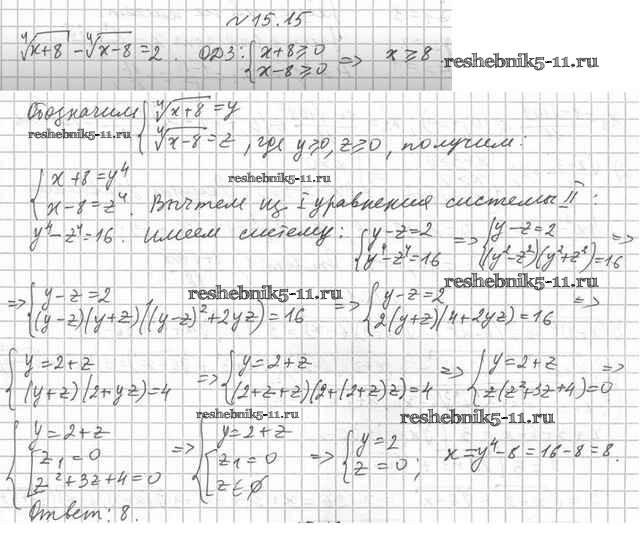 №15.15
∜(x+8) - ∜(x-8) = 2. ОДЗ: { x+8≥0 x-8≥0 => x≥8 reshebnik5-11.ru
Обозначим { ∜(x+8) = y
reshebnik5-11.ru ∜(x-8) = z, где y≥0, z≥0, получим:
{ x+8=y⁴ reshebnik5-11.ru
x-8=z⁴. Вычтем из I уравнения системы II:
y⁴-z⁴=16. Имеем систему: { y-z=2 y⁴-z⁴=16 => { y-z=2 (y²-z²)(y²+z²)=16 =>
reshebnik5-11.ru
=> { y-z=2 (y-z)(y+z)((y-z)²+2yz)=16 => { y-z=2 2(y+z)(4+2yz)=16 =>
reshebnik5-11.ru
{ y=2+z (y+z)(2+yz)=4 => { y=2+z (2+z+z)(2+(2+z)z)=4 => { y=2+z z(z²+3z+4)=0 =>
reshebnik5-11.ru reshebnik5-11.ru
{ y=2+z [ z₁=0 z²+3z+4=0 => { y=2+z [ z₁=0 z∈∅ => { y=2 z=0; x=y⁴-8=16-8=8.
Ответ: 8.